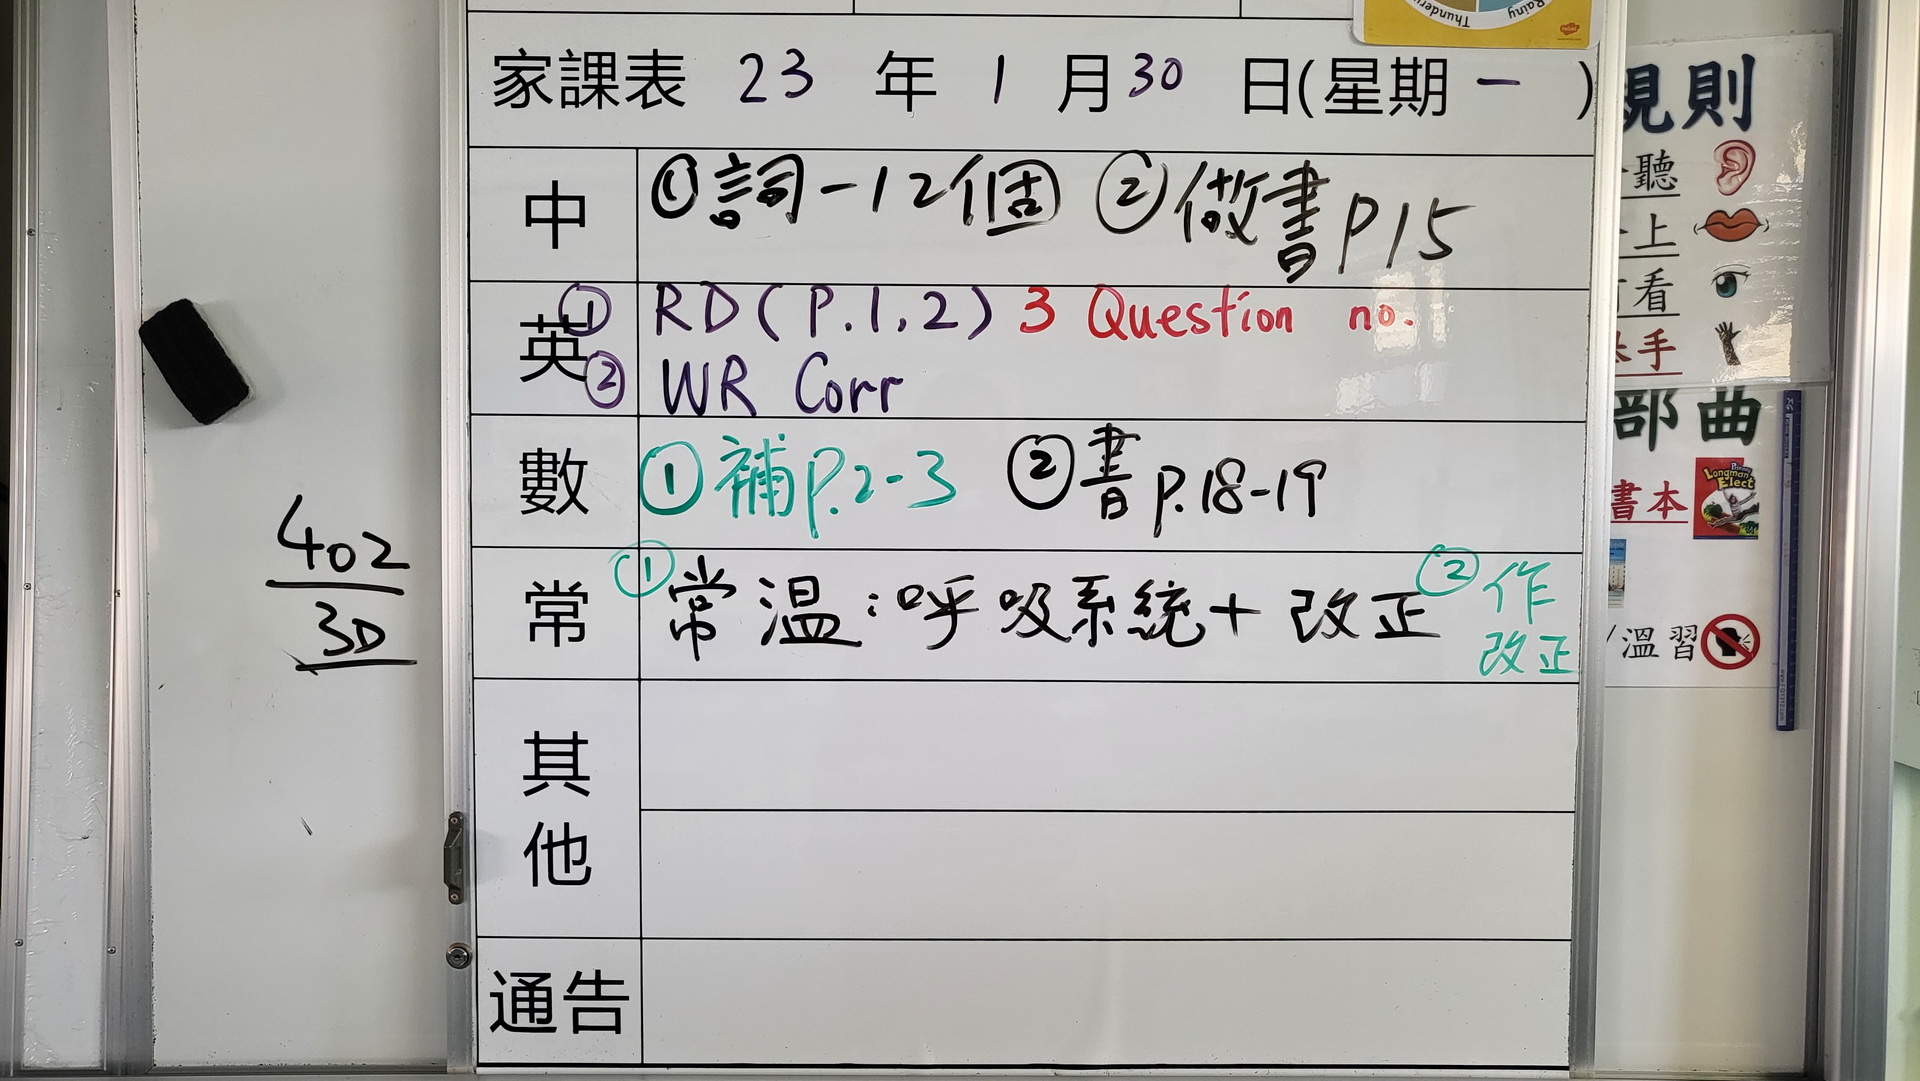 Thunder
Rainy
家課表 23 年 1 月 30 日(星期 一 )
中 ①詞-12個 ②做書P15
英 ① RD(P.1,2) 3 Question no.
② WR Corr
數 ①補P.2-3 ②書P.18-19
常 ①常溫:呼吸系統+改正 ②作
改正
其
他
通告
402
3D
規則
聽
上
看
手
部曲
Longman
Elect
書本
/溫習